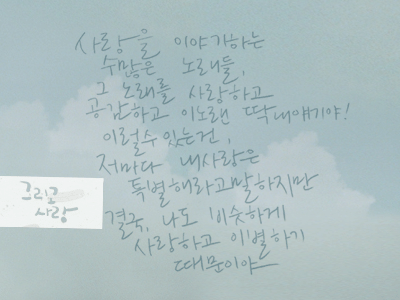 사랑을 이야기하는
수많은 노래들,
그 노래를 사랑하고
공감하고 이노랜 딱 내얘기야!
이럴수 있는건,
저마다 내사랑은
특별해라고말하지만
결국, 나도 비슷하게
사랑하고 이별하기
때문이야
그리고
사랑